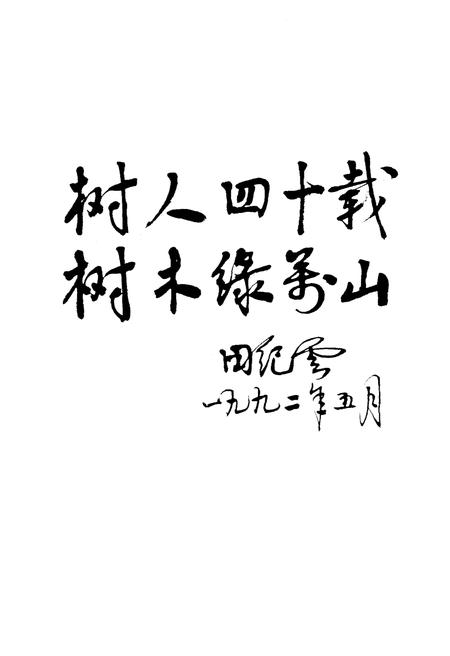 树人四十载
树木綠萬山
田纪雲
一九九二年五月